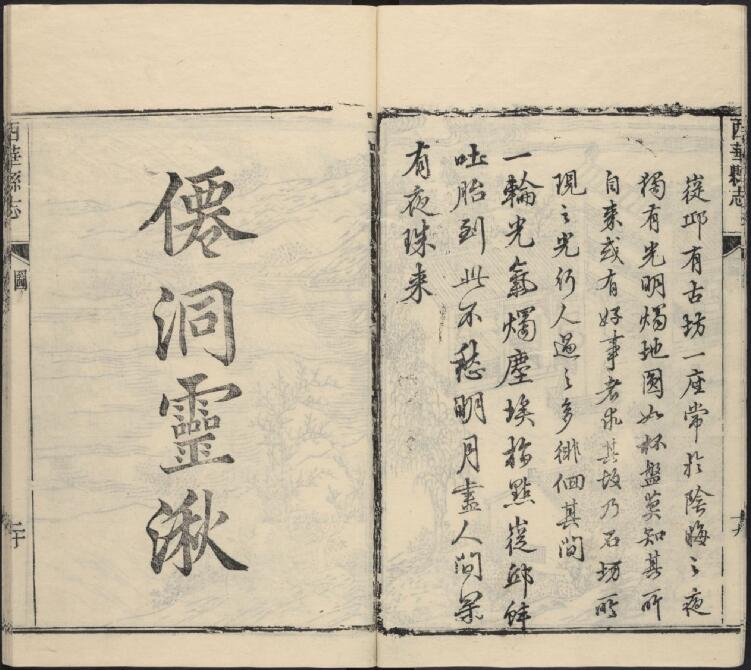 西華縣志
邱有古坊一座常於陰晦之夜
獨有光明燭地圓如杯盤莫知其所
自来或有好事者求其故乃石坊所
現之光行人過之多徘徊其間
一輪光氣燭塵埃點邱蚌
吐胎到此不愁明月盡人間果
有夜珠来
僊洞靈湫
西華縣志
圖
二十